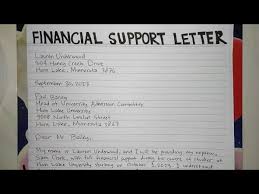 FINANCIAL SUPPORT LETTER
Lauren Underwood
Ham Lake, Minnesota 3876
September 30, 2023
Paul Bailey
Head of University Admission Committee
Ham Lake University
9008 North Lexington Street
Ham Lake, Minnesota 3867
Dear Mr. Bailey,
My name is Lauren Underwood, and I will be providing my nephew,
Sam Clark, with full financial support during his course of studies at
Ham Lake University starting on October 1, 2023. I understand